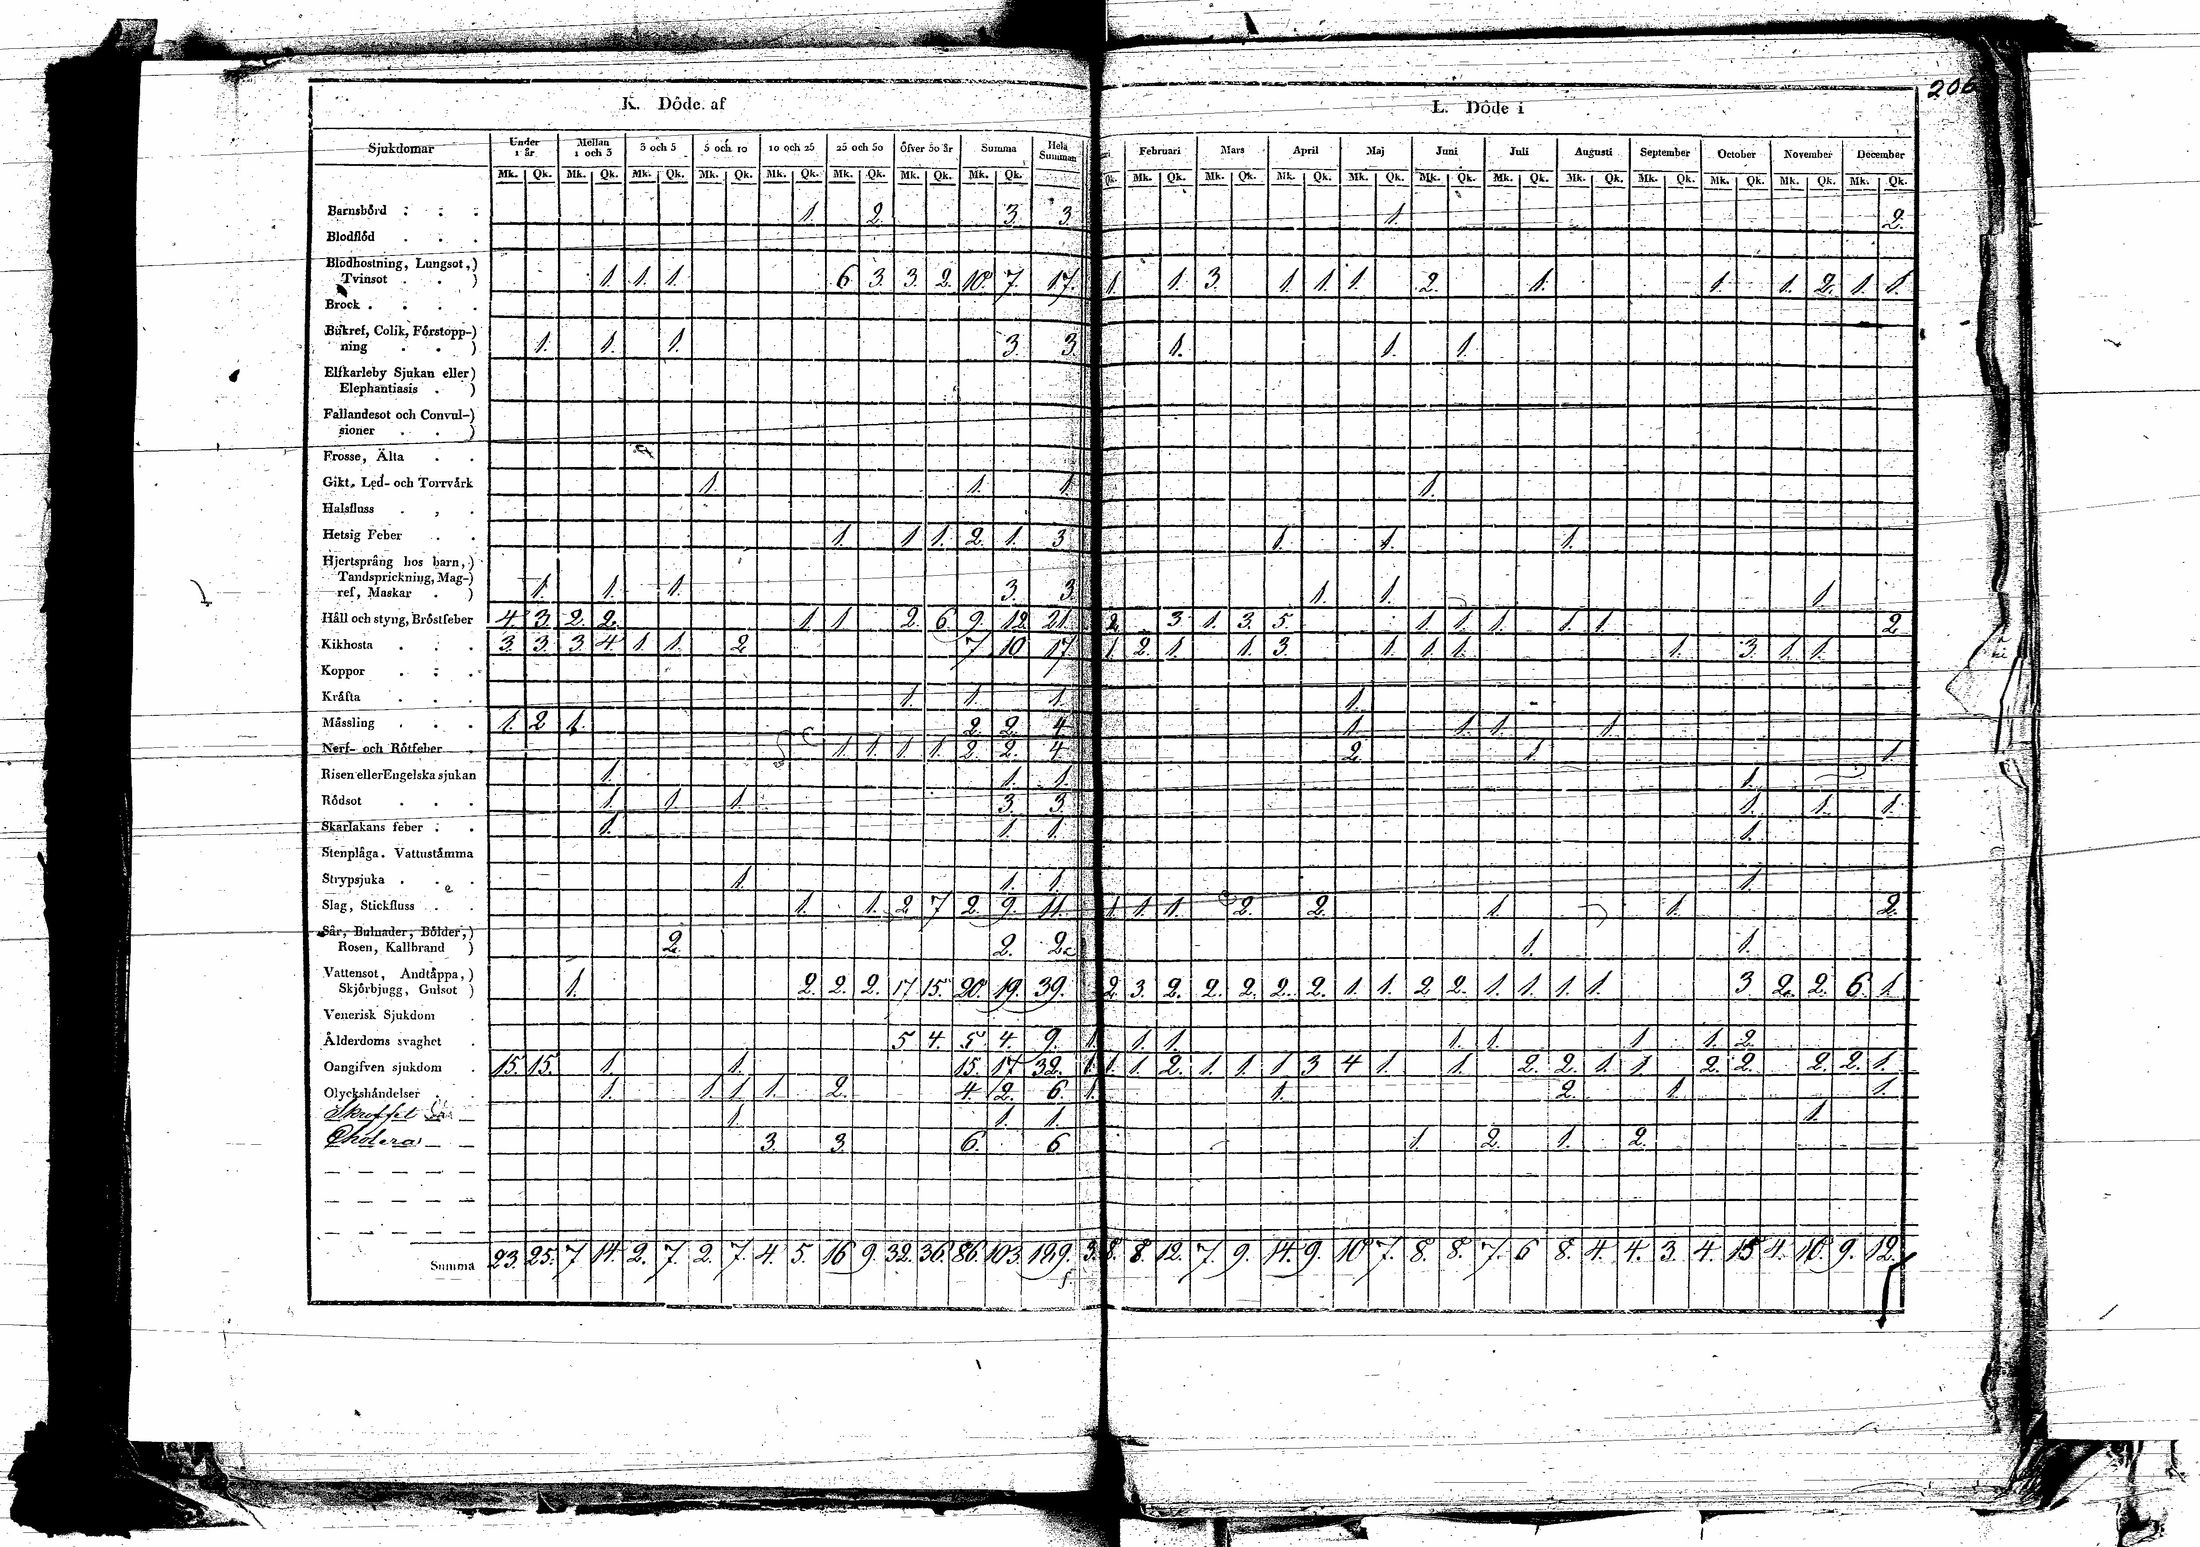 206
K. Döde af
L. Döde i
Sjukdomar Under 1 år Mellan 1 och 3 3 och 5 5 och 10 10 och 25 25 och 50 Öfver 50 år Summa Hela Summan Februari Mars April Maj Juni Juli Augusti September October November December
Mk. Qk. Mk. Qk. Mk. Qk. Mk. Qk. Mk. Qk. Mk. Qk. Mk. Qk. Mk. Qk. Qk. Mk. Qk. Mk. Qk. Mk. Qk. Mk. Qk. Mk. Qk. Mk. Qk. Mk. Qk. Mk. Qk. Mk. Qk. Mk. Qk. Mk. Qk.
Barnsbörd 1. 2. 3. 3 1. 2.
Blodflöd
Blodhostning, Lungsot,)
Tvinsot ) 1. 1. 1. 6 3. 3. 2. 10. 7. 17. 1. 1. 3. 1. 1. 1. 2. 1. 1. 1. 2. 1. 1.
Brock
Bukref, Colik, Förstopp-)
ning ) 1. 1. 1. 3. 3 1. 1. 1.
Elfkarleby Sjukan eller)
Elephantiasis )
Fallandesot och Convul-)
sioner )
Frosse, Älta
Gikt, Led- och Torrvärk 1. 1. 1. 1.
Halsfluss
Hetsig Feber 1. 1 1. 2. 1. 3 1. 1. 1.
Hjertsprång hos barn,)
Tandsprickning, Mag-)
ref, Maskar ) 1. 1. 1. 3. 3. 1. 1. 1.
Håll och styng, Bröstfeber 4. 3. 2. 2. 1 1. 2. 6 9. 12. 21. 2. 3. 1. 3. 5. 1. 1. 1. 1. 1. 2.
Kikhosta 3. 3. 3. 4 1. 1. 2 7 10 17 1. 2. 1. 1. 3. 1. 1. 1. 1. 3. 1. 1.
Koppor
Kräfta 1. 1. 1. 1.
Mässling 1. 2 1. 2. 2. 4 1. 1. 1. 1.
Nerf- och Rötfeber 1. 1. 1. 1. 2. 2. 4 2. 1. 1.
Risen eller Engelska sjukan 1. 1. 1. 1.
Rödsot 1. 1. 1. 3. 3. 1. 1. 1.
Skarlakans feber 1. 1. 1. 1.
Stenplåga. Vattustämma
Strypsjuka 1. 1. 1. 1.
Slag, Stickfluss 1. 1. 2 7 2. 9. 11. 1 1. 1. 2. 2. 1. 1. 2.
Sår, Bulnader, Bölder,)
Rosen, Kallbrand ) 2. 2. 2. 1. 1.
Vattensot, Andtäppa,)
Skjörbjugg, Gulsot ) 1. 2. 2. 2. 17 15. 20. 19. 39. 2 3. 2. 2. 2. 2. 2. 1. 1. 2 2. 1. 1. 1. 1. 3. 2. 2. 6. 1.
Venerisk Sjukdom
Ålderdoms svaghet 5 4. 5 4. 9. 1. 1. 1. 1. 1. 1. 1. 2.
Oangifven sjukdom 15. 15. 1. 1. 15. 17 32. 1. 1. 1. 2. 1. 1. 1. 3 4 1. 1. 2. 2. 1. 1. 2. 2. 2. 2. 1.
Olyckshändelser 1. 1. 1. 1. 2. 4. 2. 6. 1. 1. 2. 1. 1.
1. 1. 1. 1.
Cholera 3. 3. 6. 6 1. 2. 1. 2.
Summa 23. 25. 7 14. 2. 7. 2. 7. 4. 5. 16 9. 32. 36. 86. 103. 189. 3. 8. 8. 12. 7. 9. 14. 9. 10. 7. 8. 8. 7. 6 8. 4. 4. 3. 4. 15 4. 10. 9. 12.